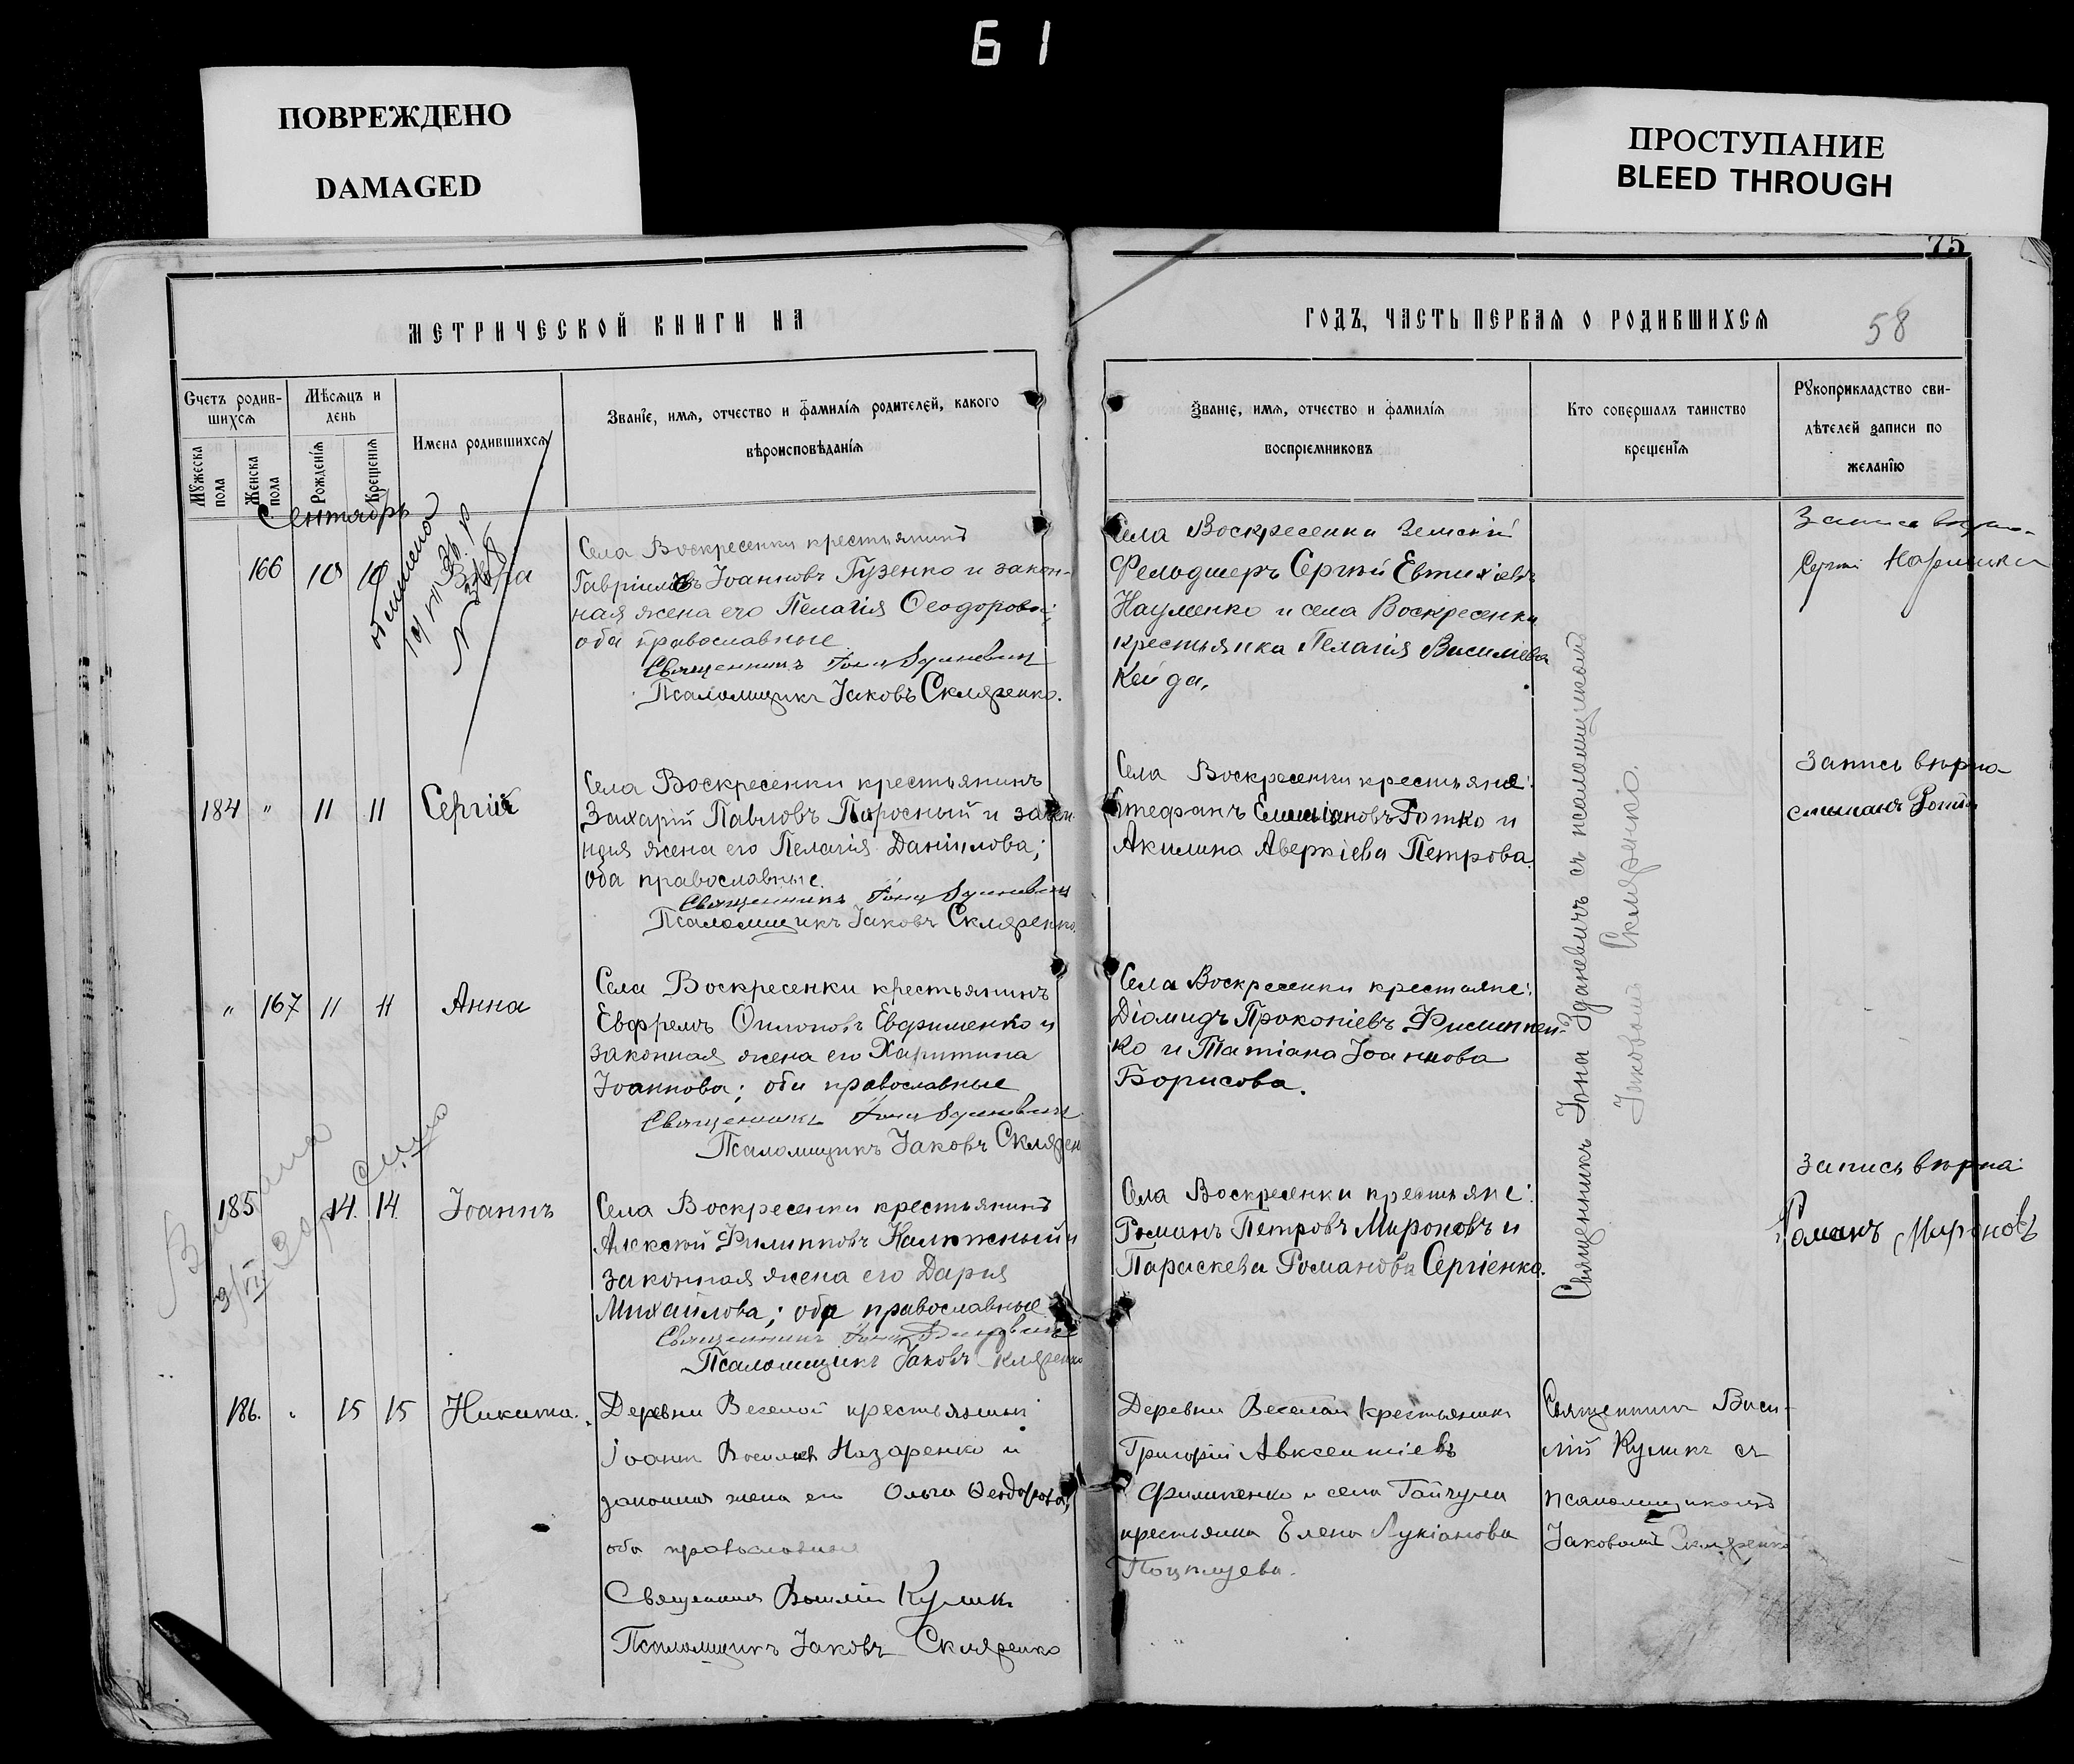 61
ПОВРЕЖДЕНО
DAMAGED
ПРОСТУПАНИЕ
BLEED THROUGH
75
МЕТРИЧЕСКОЙ КНИГИ НА
ГОДЪ, ЧАСТЬ ПЕРВАЯ О РОДИВШИХСЯ
58
Счетъ родив-
шихся
Мужеска пола
Женска пола
Мѣсяцъ и
день
Рожденія
Крещенія
Имена родившихся
Званіе, имя, отчество и фамилія родителей, какого
вѣроисповѣданія
Званіе, имя, отчество и фамилія
воспріемниковъ
Кто совершалъ таинство
крещенія
Рукоприкладство сви-
дѣтелей записи по
желанію
Сентябрь
166 10 10 Вѣра
Села Воскресенки крестьянинъ
Гавріилъ Іоанновъ Гузенко и закон-
ная жена его Пелагія Ѳеодорова;
оба православные
Священникъ Іона Зданевичъ
Псаломщикъ Іаковъ Скляренко.
Села Воскресенки Земскій
Фельдшеръ Сергій Евтихіевъ
Науменко и села Воскресенки
крестьянка Пелагія Василіева
Кейда.
Запись вѣрна
Сергій
184 " 11 11 Сергій
Села Воскресенки крестьянинъ
Захарій Павловъ Поросный и закон
ная жена его Пелагія Даніилова;
оба православные.
Священникъ Іона Зданевичъ
Псаломщикъ Іаковъ Скляренко.
Села Воскресенки крестьяне:
Стефанъ Емиліановъ Fотко и
Акилина Аверкіева Петрова.
Запись вѣрна
" 167 11 11 Анна
Села Воскресенки крестьянинъ
Евфремъ Евфименко и
законная жена его Харитина
Іоаннова; оба православные
Священникъ Іона Зданевичъ
Псаломщикъ Іаковъ Склярен
Села Воскресенки крестьяне:
Діомидъ Прокопіевъ Филиппен-
ко и Татіана Іоаннова
Борисова.
Священникъ Іона Зданевичъ съ псаломщикомъ
Іаковомъ Скляренко.
185 14 14 Іоаннъ
Села Воскресенки крестьянинъ
Алексій Филипповъ Калюжный и
законная жена его Дарія
Михайлова; оба православные
Священникъ Іона Зданевичъ
Псаломщикъ Іаковъ Скляренко
Села Воскресенки крестьяне:
Романъ Петровъ Мироновъ и
Параскева Романова Сергіенко.
Запись вѣрна
Романъ Мироновъ
186. " 15 15 Никита.
Деревни Веселой крестьянинъ
Іоаннъ Василіевъ Назаренко и
законная жена его Ольга Ѳеодорова;
оба православные
Священникъ Василій Куликъ
Псаломщикъ Іаковъ Скляренко
Деревни Веселой крестьянинъ
Григорій Авксентіевъ
Филипенко и села Гайчула
крестьянка Елена Лукіанова
Священникъ Васи-
лій Куликъ съ
псаломщикомъ
Іаковомъ Скляренко